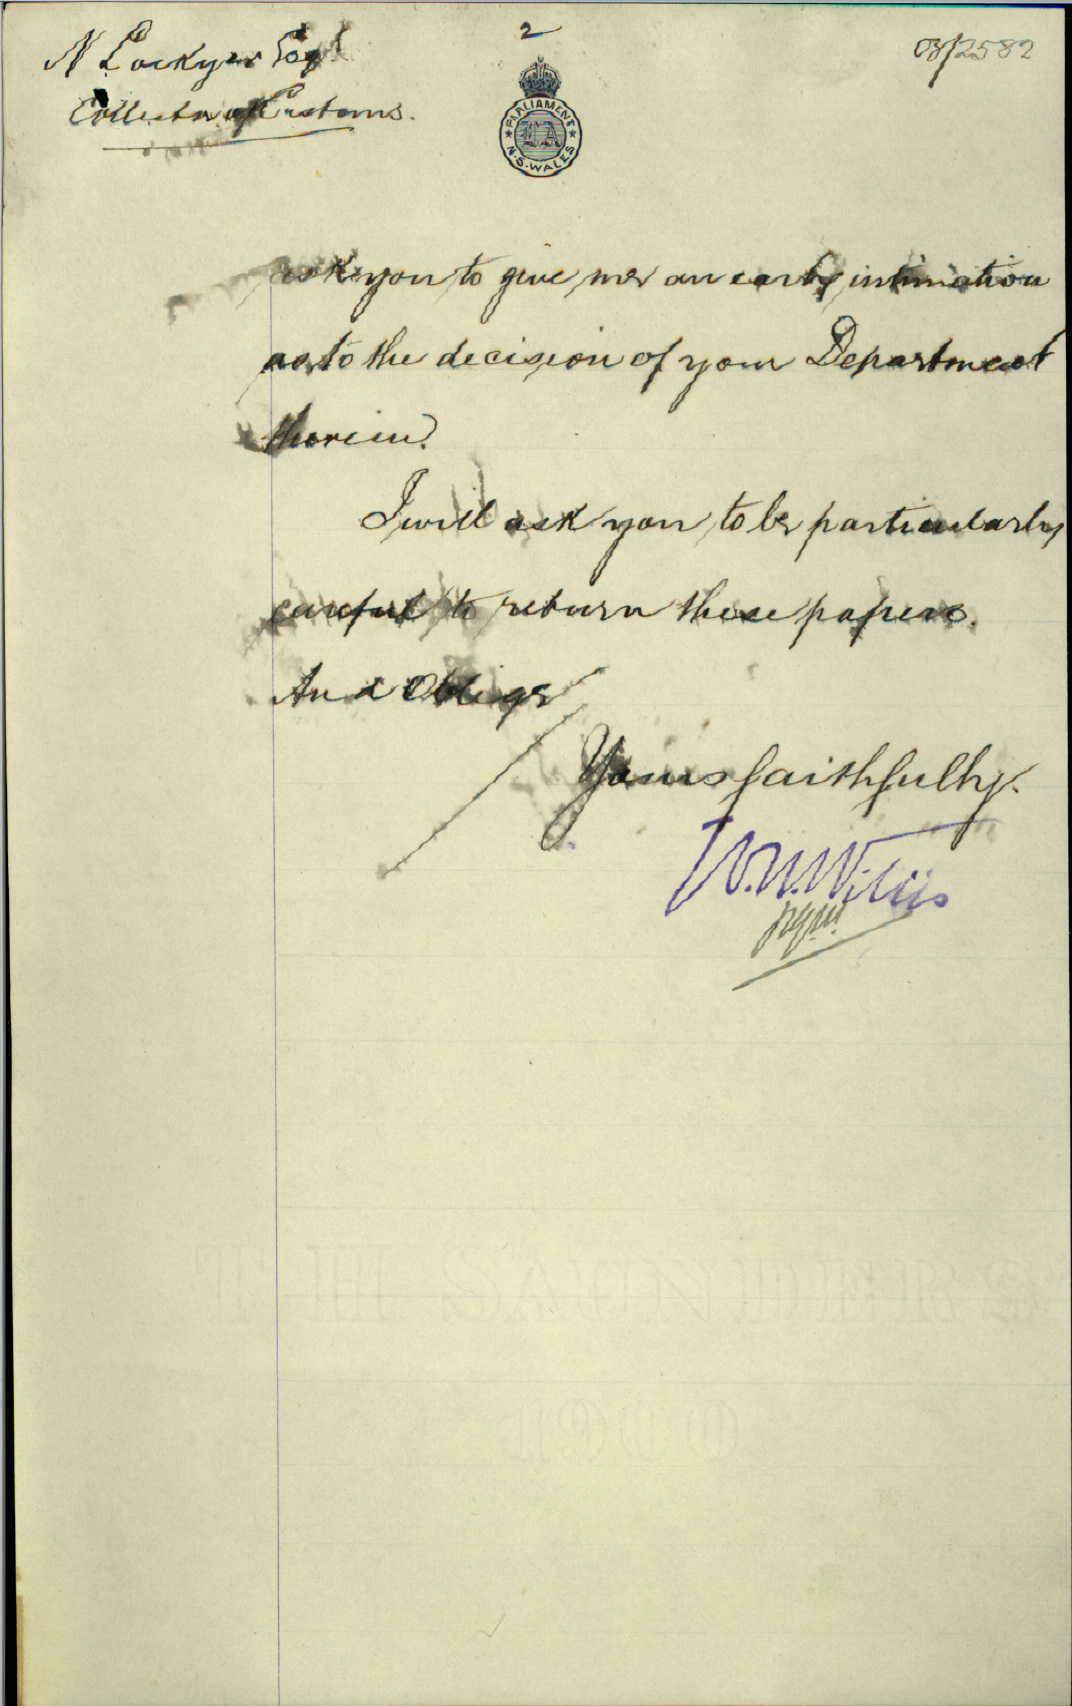 2
03/2582
N Lockyer Esq
Collector of Customs.
PARLIAMENT
N.S. WALES
ask you to give me an early intimation
as to the decision of your Department
therein.
I will ask you to be particularly
careful to return these papers.
And Oblige
Yours faithfully.
W.N. Willis
T H SAUNDERS
1900